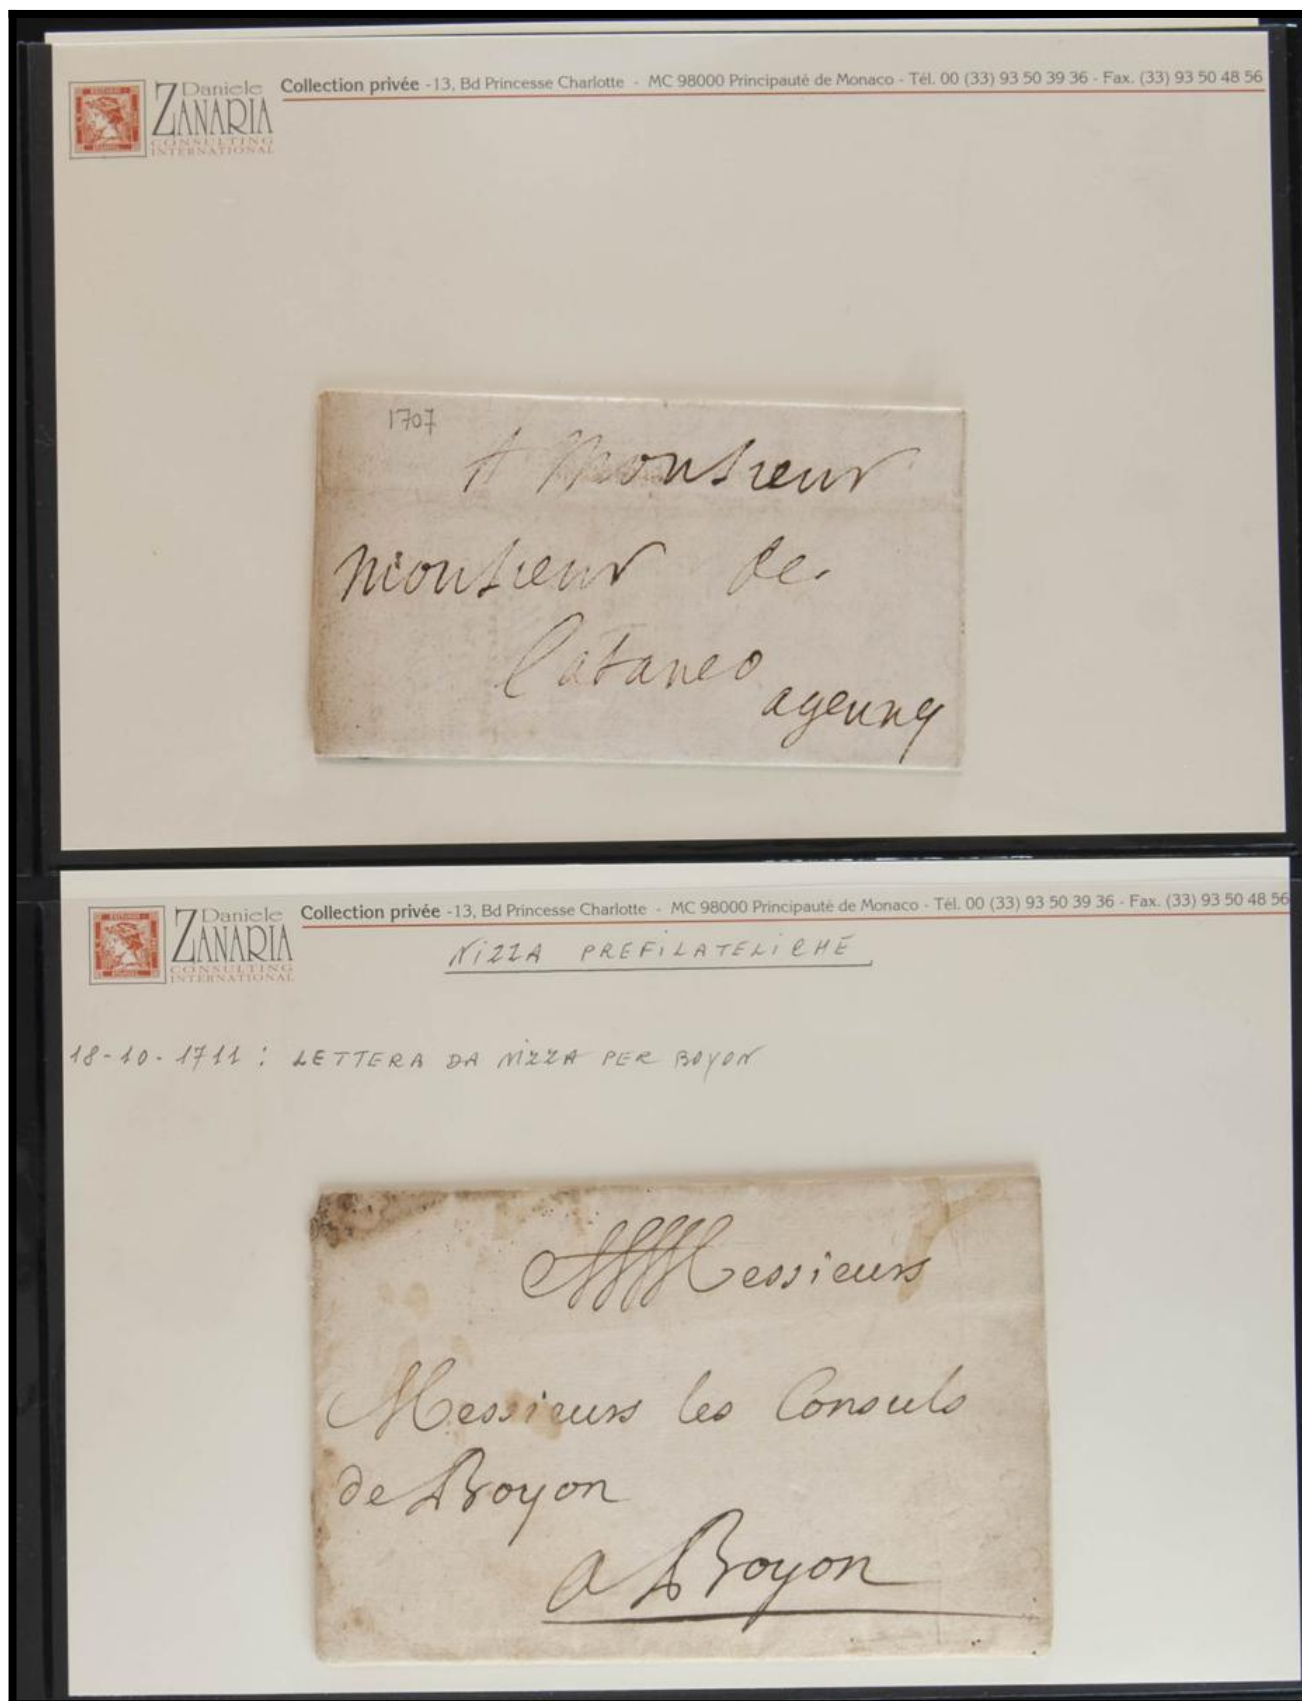 Daniele
ZANARIA
CONSULTING
INTERNATIONAL
Collection privée - 13, Bd Princesse Charlotte - MC 98000 Principauté de Monaco - Tél. 00 (33) 93 50 39 36 - Fax. (33) 93 50 48 56
1707
A Monsieur
Monsieur de
Cataneo
Daniele
ZANARIA
CONSULTING
INTERNATIONAL
Collection privée - 13, Bd Princesse Charlotte - MC 98000 Principauté de Monaco - Tél. 00 (33) 93 50 39 36 - Fax. (33) 93 50 48 56
NIZZA PREFILATELICHE
18-10-1711: LETTERA DA NIZZA PER BOYON
Messieurs
Messieurs les Consuls
de Boyon
a Boyon